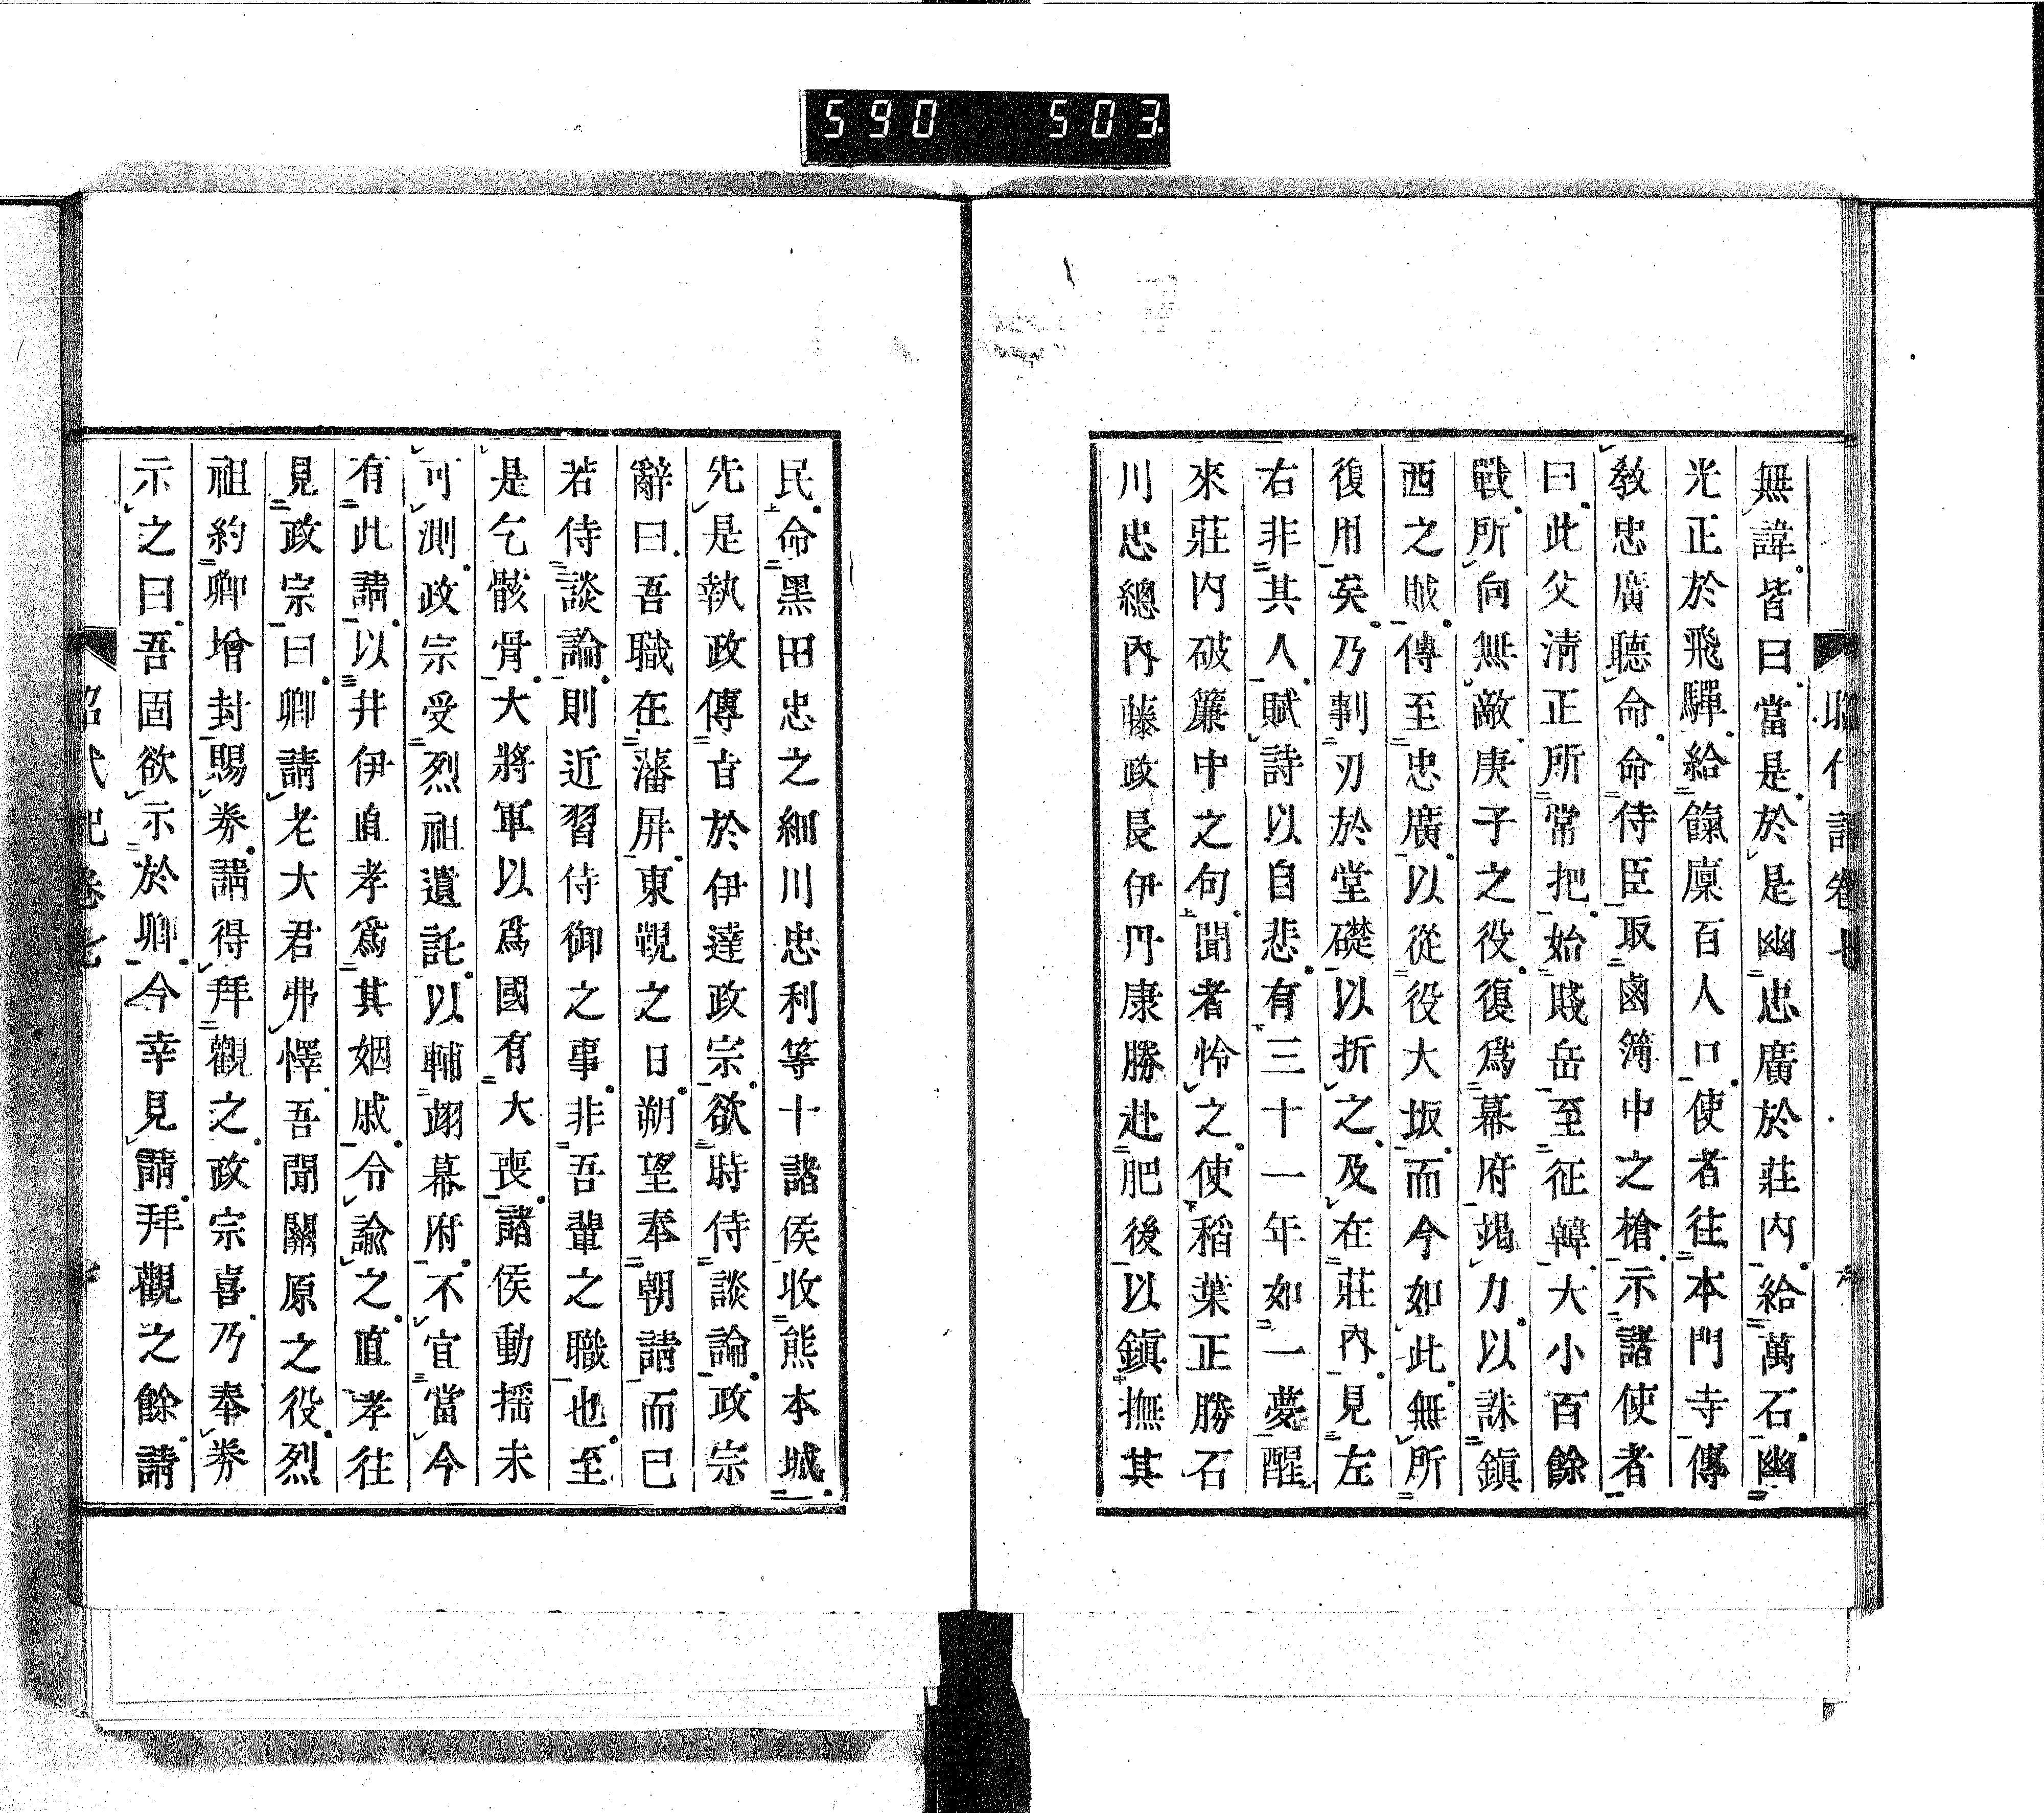 590 503
無諱皆曰當是於是幽忠廣於莊内給萬石幽
光正於飛驒給餼廩百人口使者往本門寺傳
教忠廣聽命命侍臣取鹵簿中之槍示諸使者
曰此父淸正所常把始賤岳至征韓大小百餘
戰所向無敵庚子之役復爲幕府竭力以誅鎭
西之賊傳至忠廣以從役大坂而今如此無所
復用矣乃剚刃於堂礎以折之及在莊內見左
右非其人賦詩以自悲有三十一年如一夢醒
來莊内破簾中之句聞者怜之使稻葉正勝石
川忠總內藤政長伊丹康勝赴肥後以鎭撫其
民命黑田忠之細川忠利等十諸侯收熊本城
先是執政傳旨於伊達政宗欲時侍談論政宗
辭曰吾職在藩屏東覲之日朔望奉朝請而已
若侍談論則近習侍御之事非吾輩之職也至
是乞骸骨大將軍以爲國有大喪諸侯動揺未
可測政宗受烈祖遺託以輔翊幕府不宜當今
有此請以井伊直孝爲其姻戚令諭之直孝往
見政宗曰卿請老大君弗懌吾聞關原之役烈
祖約卿增封賜券請得拜觀之政宗喜乃奉券
示之曰吾固欲示於卿今幸見請拜觀之餘請